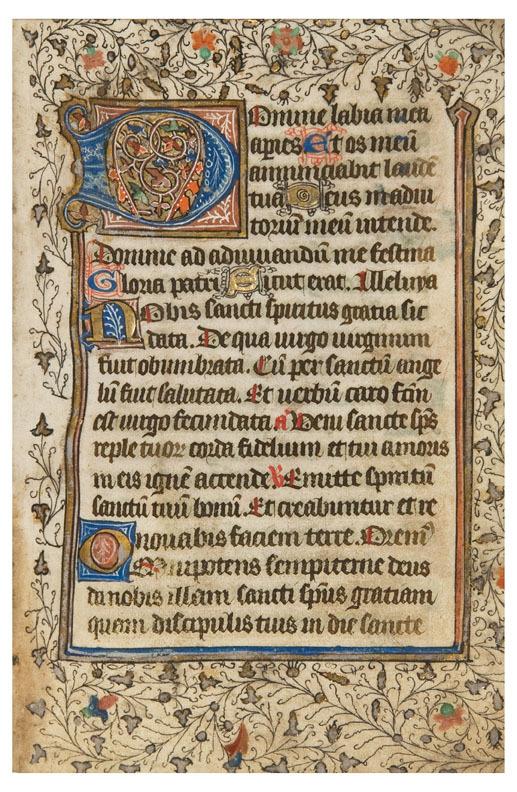 Domine labia mea
apies Et os meū
annunciabit laudē
tuā Deus in adiu
toriū meū intende.
Domine ad adiuuandū me festina
Gloria patri Sicut erat. Alleluya
Nobis sancti spiritus gratia sit
data. De qua uirgo uirginum
fuit obumbrata. Cū per sanctū ange
lū fuit salutata. Et uerbū caro fc̄m
est uirgo fecundata. a Veni sancte sp̄s
reple tuoꝝ corda fidelium et tui amoris
in eis ignē accende. V Emitte spiritū
sanctū tuū bonū. Et creabuntur et re
nouabis faciem terre. Oremꝰ
Omnipotens sempiterne deus
da nobis illam sancti sp̄us gratiam
quem discipulis tuis in die sancte